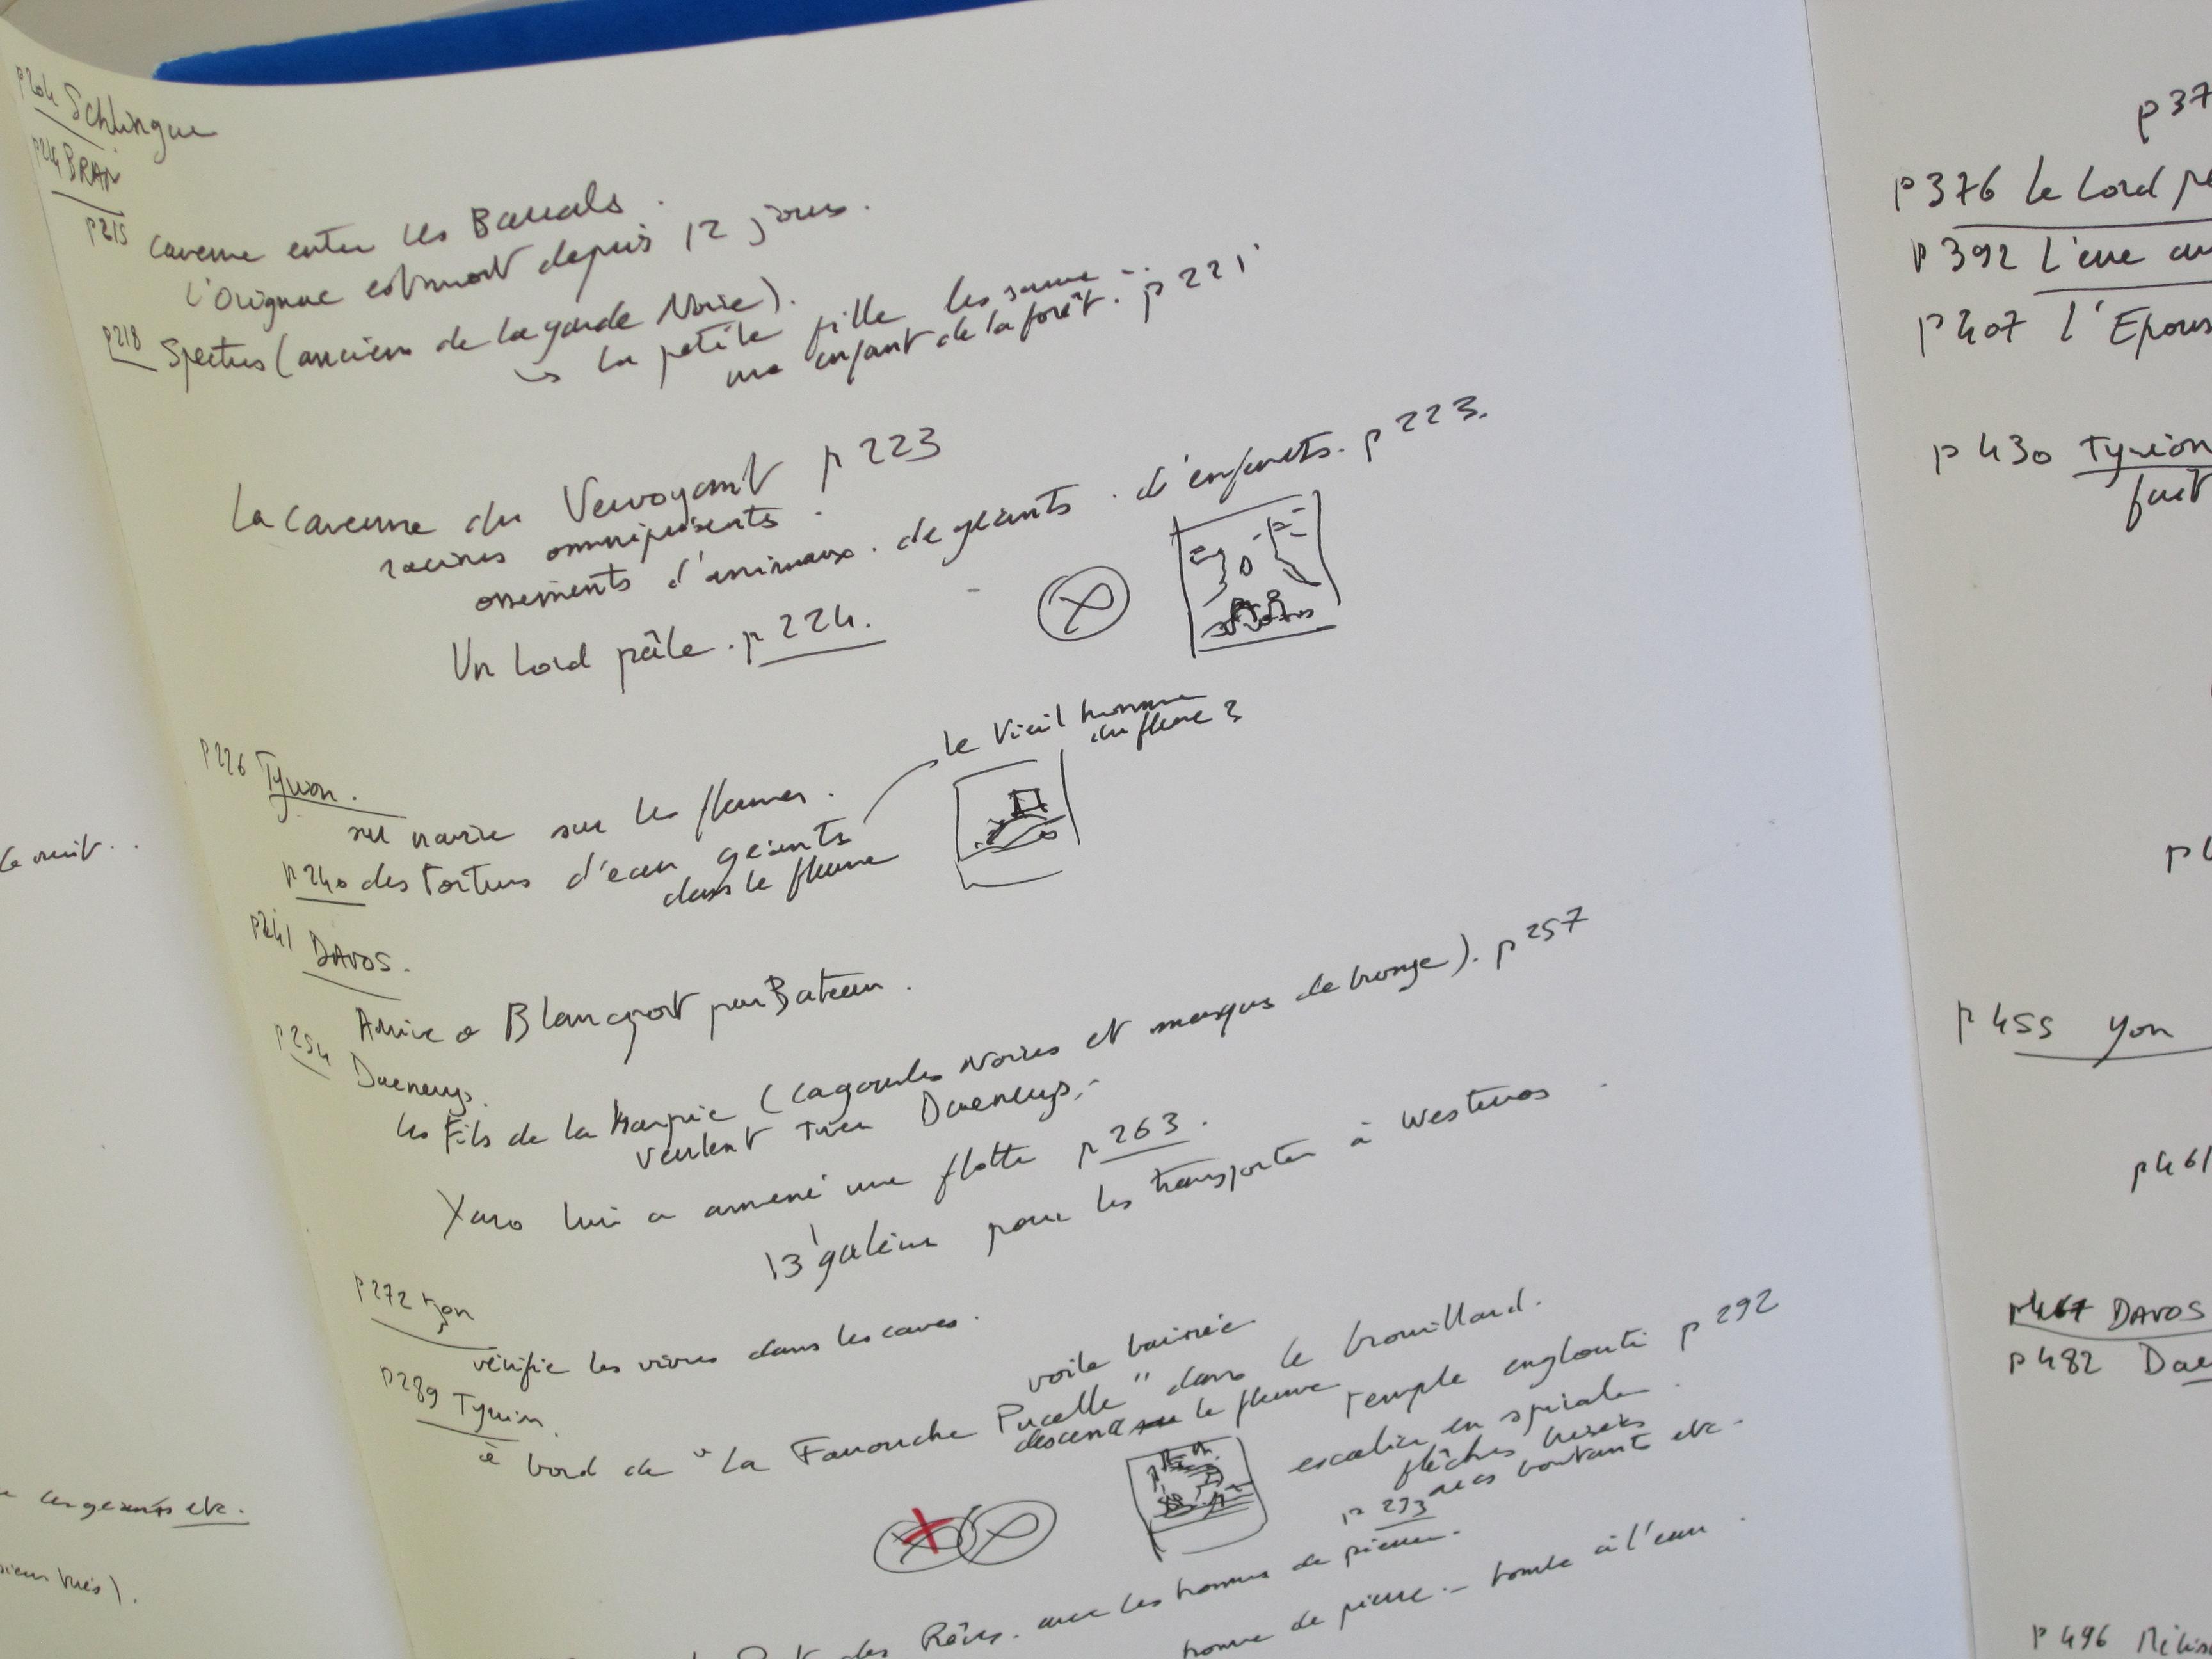 p204 Schlingue
p214 BRAN
p215 Caverne entre les Barrals.
l'Orignac est mort depuis 12 jours.
p218 Spectres (anciens de la garde Noire).
↳ la petite fille les sauve
une enfant de la forêt. p221
La Caverne du Vervoyant p223
racines omniprésentes.
ossements d'animaux. de géants. d'enfants. p223.
Un Lord pâle. p224.
le Vieil homme
du fleuve ?
p226 Tyrion.
sur navire sur le fleuve.
p240 des tortues d'eau géants
dans le fleuve
p241 DAVOS.
Arrive à Blancport par Bateau.
p254 Daenerys.
les Fils de la Harpie (cagoules Noires et masques de bronze). p257
veulent Tuer Daenerys.
Xaro lui a amené une flotte p263.
13 galères pour les transporter à Westeros.
p272 
vérifie les vivres dans les caves.
p289 Tyrion
voile
à bord de "La Farouche Pucelle" dans le brouillard.
descend le fleuve
Temple englouti p292
escalier en spirale.
flèches brisées
arcs boutants etc.
p293
des Rêves. avec les hommes de pierre.
homme de pierre — tombe à l'eau.
la nuit..
les géants etc.
p37
p376 le Lord
p392
p407 l'Epous
p430 Tyrion
p455 Yon
p461
p467 DAVOS
p482 Dae
p496